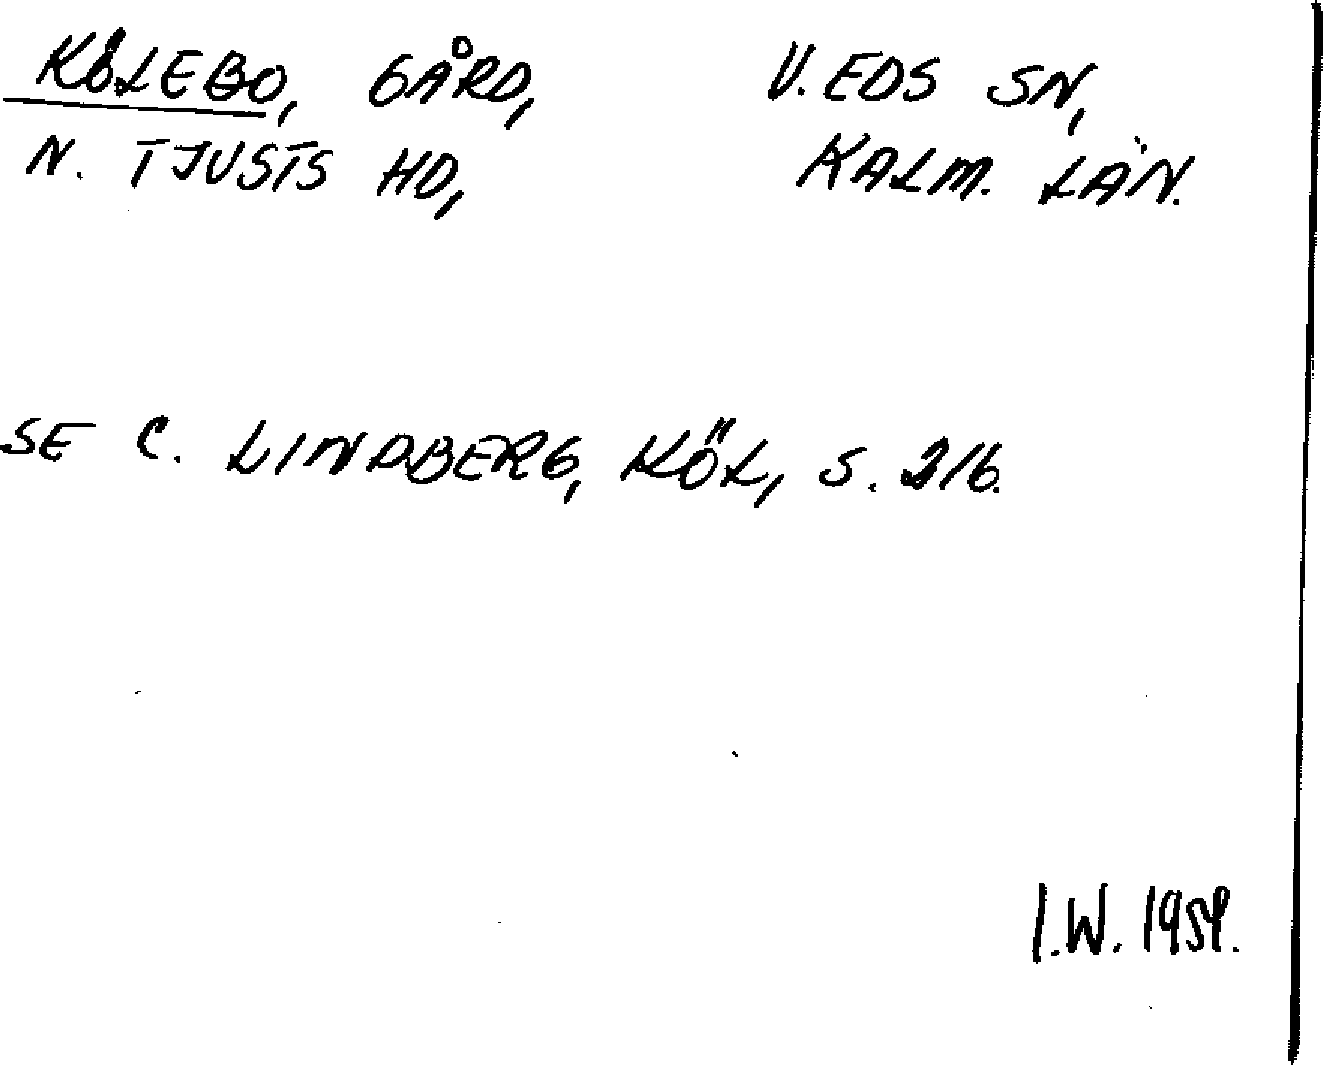 KÖLEBO, GÅRD, V. EDS SN,
N. TJUSTS HD, KALM. LÄN.
SE C. LINDBERG, KÖL, S. 216.
I.W. 1959.